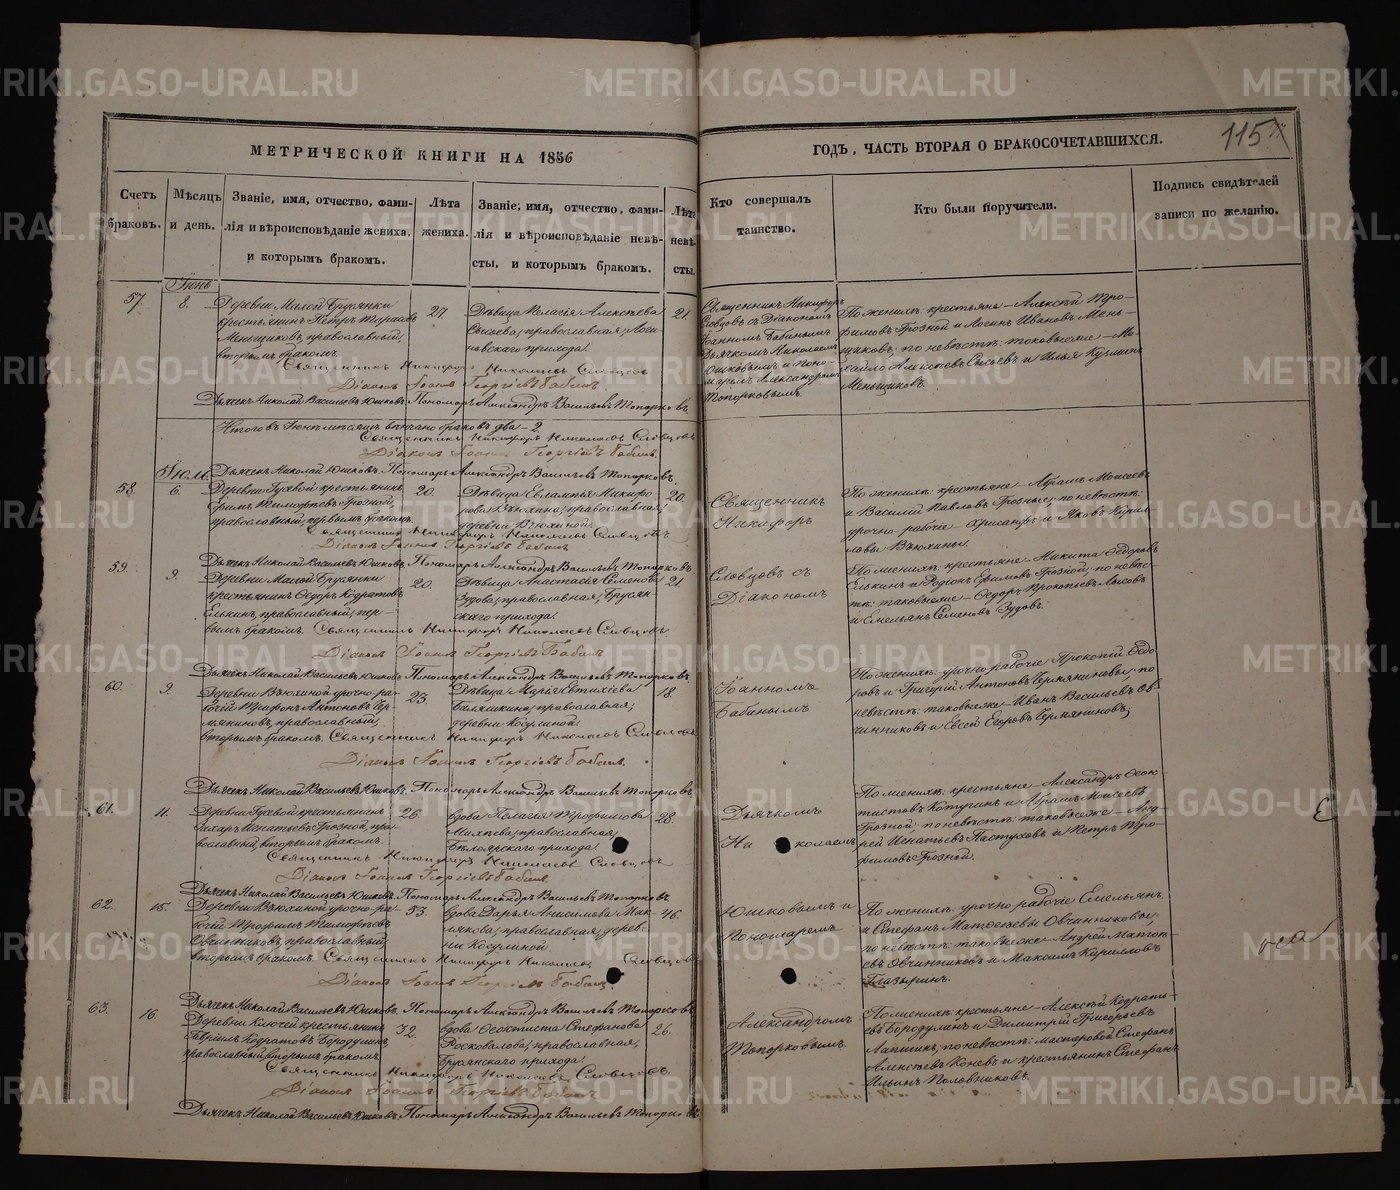 МЕТРИЧЕСКОЙ КНИГИ НА 1856
ГОДЪ, ЧАСТЬ ВТОРАЯ О БРАКОСОЧЕТАВШИХСЯ.
115
Счетъ браковъ.
Мѣсяцъ и день.
Званіе, имя, отчество, фами-
лія и вѣроисповѣданіе жениха,
и которымъ бракомъ.
Лѣта жениха.
Званіе, имя, отчество, фами-
лія и вѣроисповѣданіе невѣ-
сты, и которымъ бракомъ.
Лѣта невѣ-
сты.
Кто совершалъ
таинство.
Кто были поручители.
Подпись свидѣтелей
записи по желанію.
Іюнь
57.
8.
Деревни Малой Брусянки
крестьянинъ Петръ Тарасовъ
Меньщиковъ, православный,
вторымъ бракомъ.
27.
Дѣвица Пелагія Алексѣева
Сысоева, православная, Логи-
новскаго прихода.
21
Священникъ Никифоръ
Словцовъ съ Діакономъ
Іоанномъ Бабинымъ
Дьячкомъ Николаемъ
Юшковымъ и Поно-
маремъ Александромъ
Топорковымъ.
По женихѣ: крестьяне – Алексѣй Тро-
фимовъ Грозной и Логинъ Ивановъ Мень-
щиковъ; по невѣстѣ: таковые же – Ми-
хайло Алексѣевъ Сысоевъ и Илья Кузминъ
Меньщиковъ.
Священникъ Никифоръ Николаевъ Словцовъ
Діаконъ Іоаннъ Георгіевъ Бабинъ
Дьячекъ Николай Васильевъ Юшковъ. Пономарь Александръ Васильевъ Топорковъ.
Итого въ Іюнѣ мѣсяцѣ вѣнчано браковъ два – 2.
Священникъ Никифоръ Николаевъ Словцовъ
Діаконъ Іоаннъ Георгіевъ Бабинъ.
Дьячекъ Николай Юшковъ. Пономарь Александръ Васильевъ Топорковъ.
Іюль.
58.
6.
Деревни Гусевой крестьянинъ
Ефимъ Тимофѣевъ Грозной,
православный, первымъ бракомъ.
20.
Дѣвица Евлампія Никифо-
рова Вьюхина, православная,
деревни Вьюхиной.
20.
Священникъ
Никифоръ
По женихѣ: крестьяне – Абрамъ Моисеевъ
и Василій Павловъ Грозные; по невѣстѣ:
урочно-рабочіе – Хрисанфъ и Яковъ Кирил-
ловы Вьюхины.
Священникъ Никифоръ Николаевъ Словцовъ
Діаконъ Іоаннъ Георгіевъ Бабинъ
Дьячекъ Николай Васильевъ Юшковъ. Пономарь Александръ Васильевъ Топорковъ
59.
9.
Деревни Малой Брусянки
крестьянинъ Ѳедоръ Кодратовъ
Елькинъ, православный, пер-
вымъ бракомъ.
20.
Дѣвица Анастасія Семенова
Зудова, православная, Брусян-
скаго прихода.
21
Словцовъ съ
Діакономъ
По женихѣ: крестьяне – Никита Ѳедоровъ
Елькинъ и Родіонъ Ефимовъ Грозной; по невѣс-
тѣ: таковые же – Ѳедоръ Прокопьевъ Лысовъ
и Емельянъ Семеновъ Зудовъ.
Священникъ Никифоръ Николаевъ Словцовъ
Діаконъ Іоаннъ Георгіевъ Бабинъ
Дьячекъ Николай Васильевъ Юшковъ. Пономарь Александръ Васильевъ Топорковъ.
60.
9.
Деревни Вьюхиной урочно-ра-
бочій Трифонъ Антоновъ Гер-
мякиновъ, православный,
вторымъ бракомъ.
23.
Дѣвица Марія Евтихіева
православная,
деревни Косулиной.
18.
Іоанномъ
Бабинымъ
По женихѣ: урочно-рабочіе Прокопій Ѳедо-
ровъ и Григорій Антоновъ Гермякиновы; по
невѣстѣ: таковые же – Иванъ Васильевъ Ов-
чинниковъ и Евсей Егоровъ Гермякиновъ,
Священникъ Никифоръ Николаевъ Словцовъ
Діаконъ Іоаннъ Георгіевъ Бабинъ.
Дьячекъ Николай Васильевъ Юшковъ. Пономарь Александръ Васильевъ Топорковъ
61.
11.
Деревни Гусевой крестьянинъ
Захаръ Игнатьевъ Грозной, пра-
вославный, вторымъ бракомъ.
26.
Вдова Пелагія Трофимова
православная,
Бѣлоярскаго прихода.
28.
Дьячкомъ
Николаемъ
По женихѣ: крестьяне – Александръ Ѳеок-
тистовъ Котугинъ и Абрамъ Моисеевъ
Грозной; по невѣстѣ: таковые же – Анд-
рей Игнатьевъ Пастуховъ и Петръ Тро-
фимовъ Грозной.
Священникъ Никифоръ Николаевъ Словцовъ
Діаконъ Іоаннъ Георгіевъ Бабинъ
Дьячекъ Николай Васильевъ Юшковъ. Пономарь Александръ Васильевъ Топорковъ
62.
15.
Деревни Вьюхиной урочно-ра-
бочій Трофимъ Тимофѣевъ
Овчинниковъ, православный,
вторымъ бракомъ.
53.
Вдова Дарья Анисимова Мак-
лякова, православная, дерев-
ни Косулиной
46.
Юшковымъ и
Пономаремъ
По женихѣ: урочно-рабочіе Емельянъ
и Стефанъ Матѳеевы Овчинниковы;
по невѣстѣ: таковые же Андрей Матѳе-
евъ Овчинниковъ и Максимъ Кирилловъ
Глазыринъ.
Священникъ Никифоръ Николаевъ Словцовъ
Діаконъ Іоаннъ Георгіевъ Бабинъ
Дьячекъ Николай Васильевъ Юшковъ. Пономарь Александръ Васильевъ Топорковъ
63.
16.
Деревни Ключей крестьянинъ
Гавріилъ Кодратовъ Бородулинъ,
православный, вторымъ бракомъ
32.
Вдова Ѳеоктиста Стефанова
Росковалова, православная,
Брусянскаго прихода.
26.
Александромъ
Топорковымъ.
По женихѣ: крестьяне – Алексѣй Кодрать-
евъ Бородулинъ и Димитрій Григорьевъ
Лапшинъ, по невѣстѣ: мастеровой Стефанъ
Алексѣевъ Коневъ и крестьянинъ Стефанъ
Ильинъ Половниковъ.
Священникъ Никифоръ Николаевъ Словцовъ.
Діаконъ Іоаннъ Георгіевъ Бабинъ
Дьячекъ Николай Васильевъ Юшковъ. Пономарь Александръ Васильевъ Топорковъ
METRIKI.GASO-URAL.RU